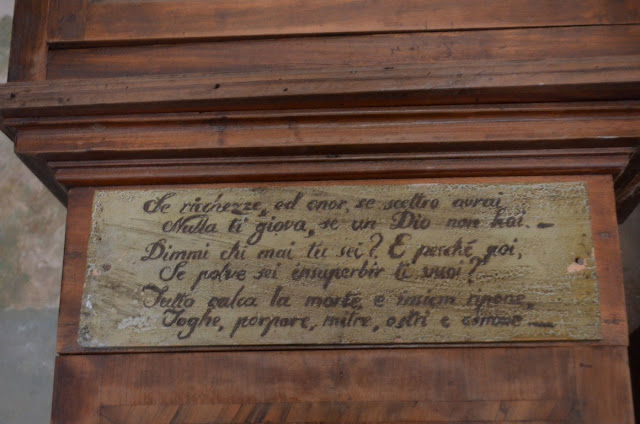 Se richezze, ed onor, se scettro avrai
Nulla ti giova, se un Dio non hai. _
Dimmi chi mai tu sei? E perché, poi,
Se polve sei insuperbir ti vuoi?
Tutto calca la morte e insiem ripone,
Toghe, porpore, mitre, ostri e corone __